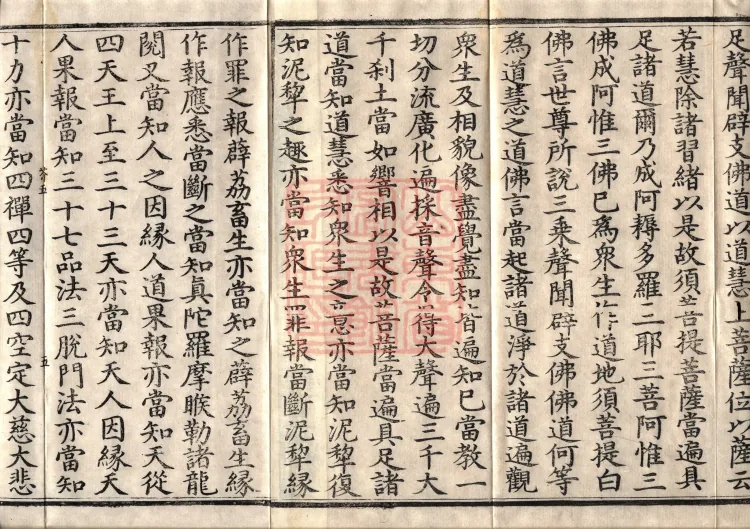 足聲聞辟支佛道以道慧上菩薩位以薩云
若慧除諸習緒以是故須菩提菩薩當遍具
足諸道爾乃成阿耨多羅三耶三菩阿惟三
佛成阿惟三佛已爲衆生作道地須菩提白
佛言世尊所說三乘聲聞辟支佛佛道何等
爲道慧之道佛言當起諸道淨於諸道遍觀
衆生及相貌像盡覺盡知皆遍知已當教一
切分流廣化遍採音聲令得大聲遍三千大
千剎土當如響相以是故菩薩當遍具足諸
道當知道慧悉知衆生之意亦當知泥犂復
知泥犂之趣亦當知衆生罪報當斷泥犂緣
作罪之報薜荔畜生亦當知之薜荔畜生緣
作報應悉當斷之當知眞陀羅摩睺勒諸龍
閱叉當知人之因緣人道果報亦當知天從
四天王上至三十三天亦當知天人因緣天
五
人果報當知三十七品法三脫門法亦當知
十力亦當知四禪四等及四空定大慈大悲